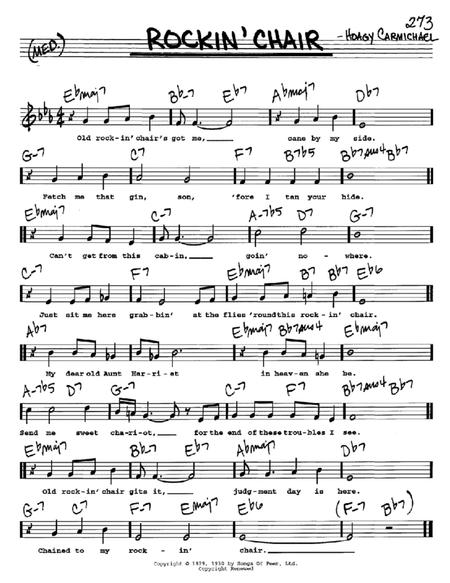 273
ROCKIN' CHAIR
(MED.)
- HOAGY CARMICHAEL
Ebmaj7 Bb-7 Eb7 Abmaj7 Db7
Old rock-in' chair's got me,____ cane by my side.
G-7 C7 F7 B7b5 Bb7sus4 Bb7
Fetch me that gin, son, 'fore I tan your hide.
Ebmaj7 C-7 A-7b5 D7 G-7
Can't get from this cab-in,____ goin' no - where.
C-7 F7 Ebmaj7 B7 Bb7 Eb6
Just sit me here grab-bin' at the flies 'round this rock - in' chair.
Ab7 Ebmaj7 Bb7sus4 Ebmaj7
My dear old Aunt Har-ri-et in heav-en she be.
A-7b5 D7 G-7 C-7 F7 Bb7sus4 Bb7
Send me sweet cha-ri-ot,____ for the end of these trou-bles I see.
Ebmaj7 Bb-7 Eb7 Abmaj7 Db7
Old rock-in' chair gits it,____ judg-ment day is here.
G-7 C7 F-7 Emaj7 Eb6 (F-7 Bb7)
Chained to my rock - in' chair.____
Copyright © 1929, 1930 by Songs Of Peer, Ltd.
Copyright Renewed